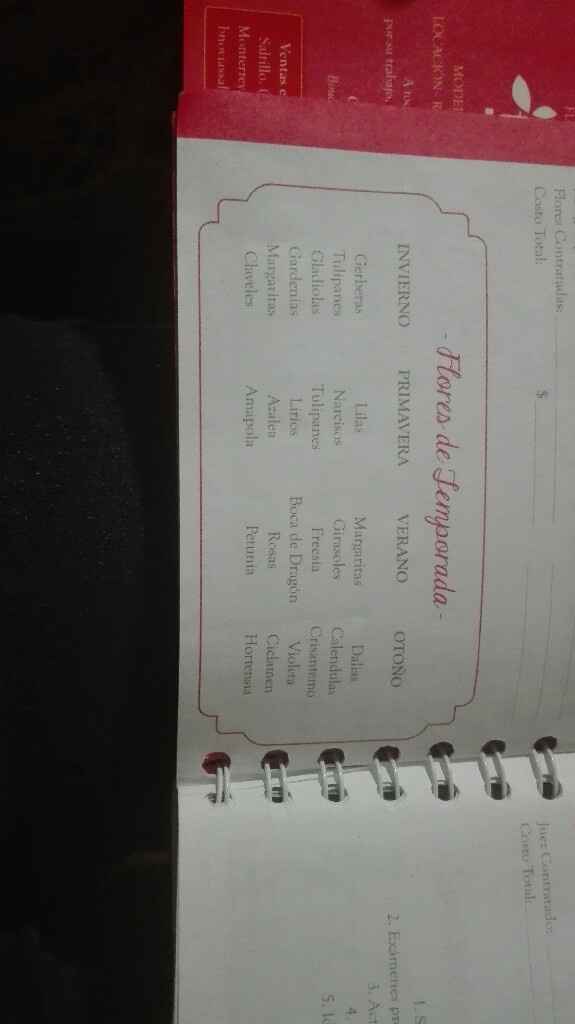 MODE
LOCACIÓN: R
A to
por su trabajo,
Ventas e
Saltillo, C
Monterrey
Flores Contratadas:
Costo Total: $
- Flores de Temporada -
INVIERNO PRIMAVERA VERANO OTOÑO
Gerberas Lilas Margaritas Dalias
Tulipanes Narcisos Girasoles Calendulas
Gladiolas Tulipanes Freesia Crisantemo
Gardenias Lirios Boca de Dragón Violeta
Margaritas Azalea Rosas Ciclamen
Claveles Amapola Petunia Hortensia
Juez Contratado:
Costo Total:
1. S
2. Exámenes pr
3. Act
4.
5. Id